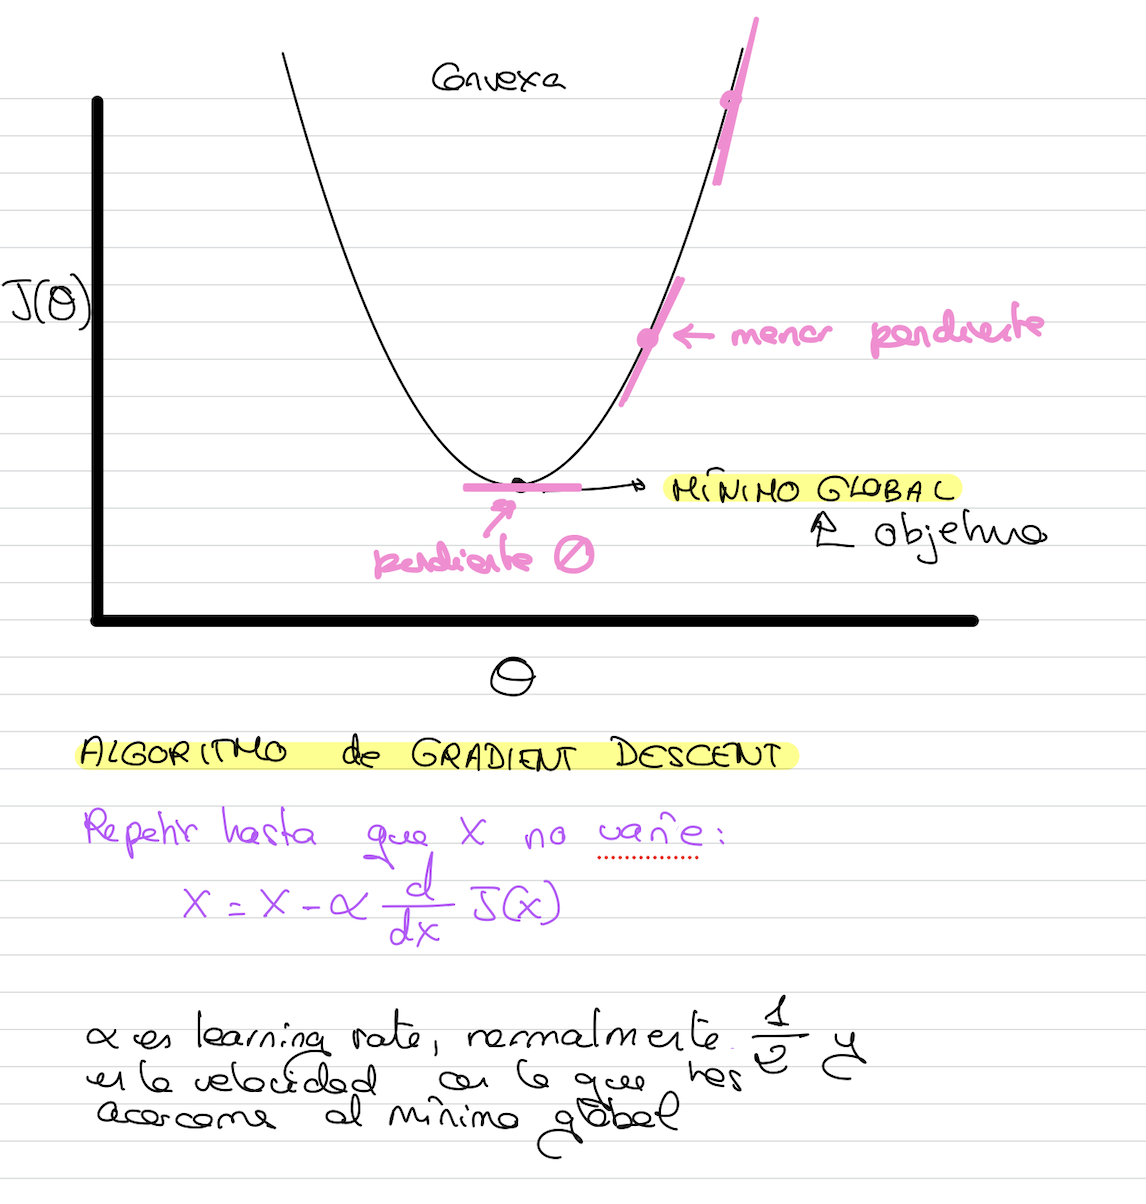 Convexa
J(θ)
← menor pendiente
MÍNIMO GLOBAL
objetivo
pendiente Ø
θ
ALGORITMO de GRADIENT DESCENT
Repetir hasta que X no varíe:
X = X - α d/dx J(x)
α es learning rate, normalmente 1/2 y
es la velocidad con la que nos
acercamos al mínimo global